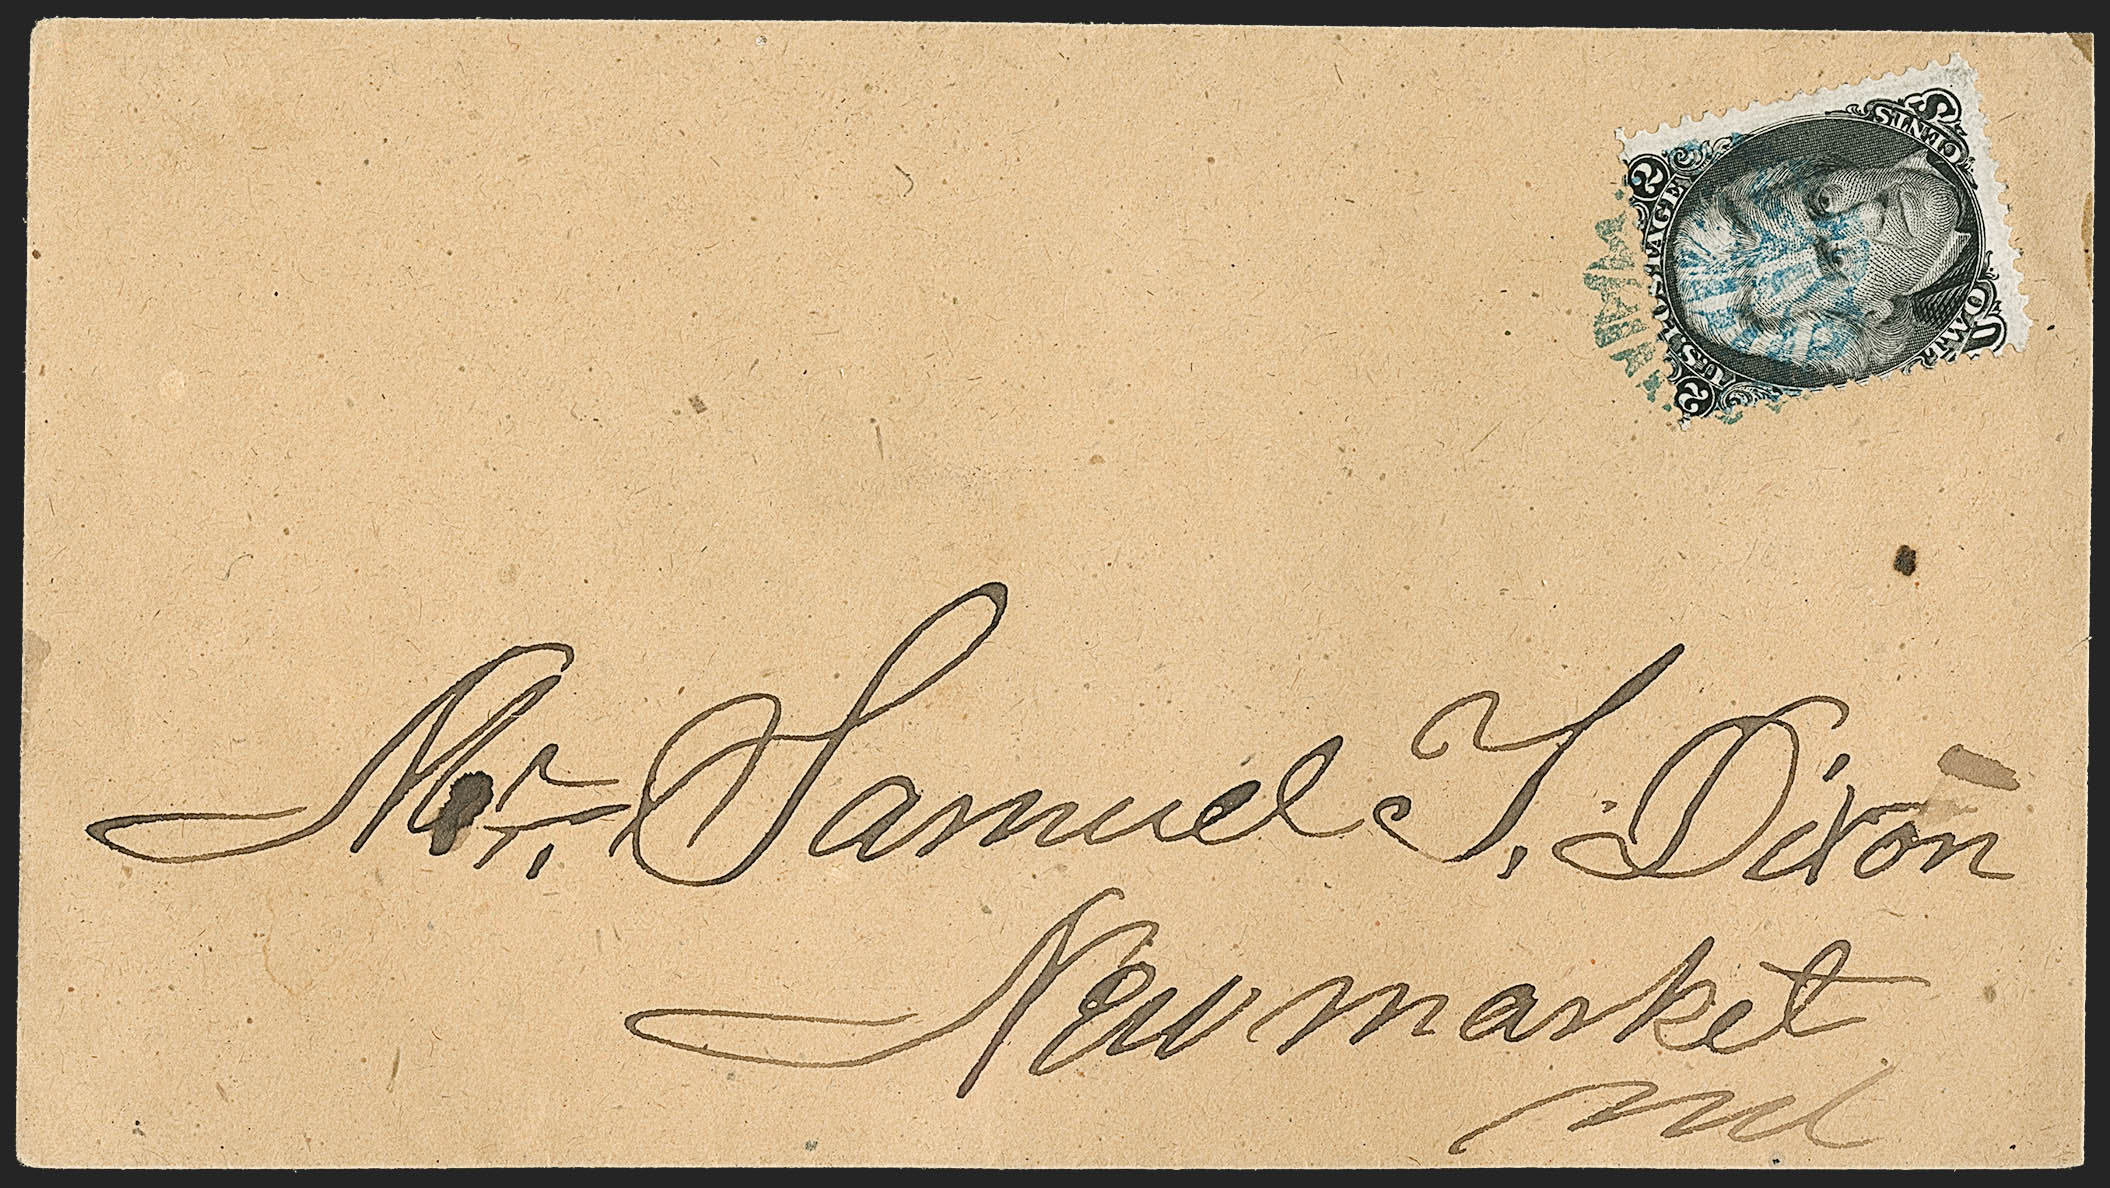 U.S. POSTAGE
2 2
TWO CENTS
Mr. Samuel T. Dixon
Newmarket
Md